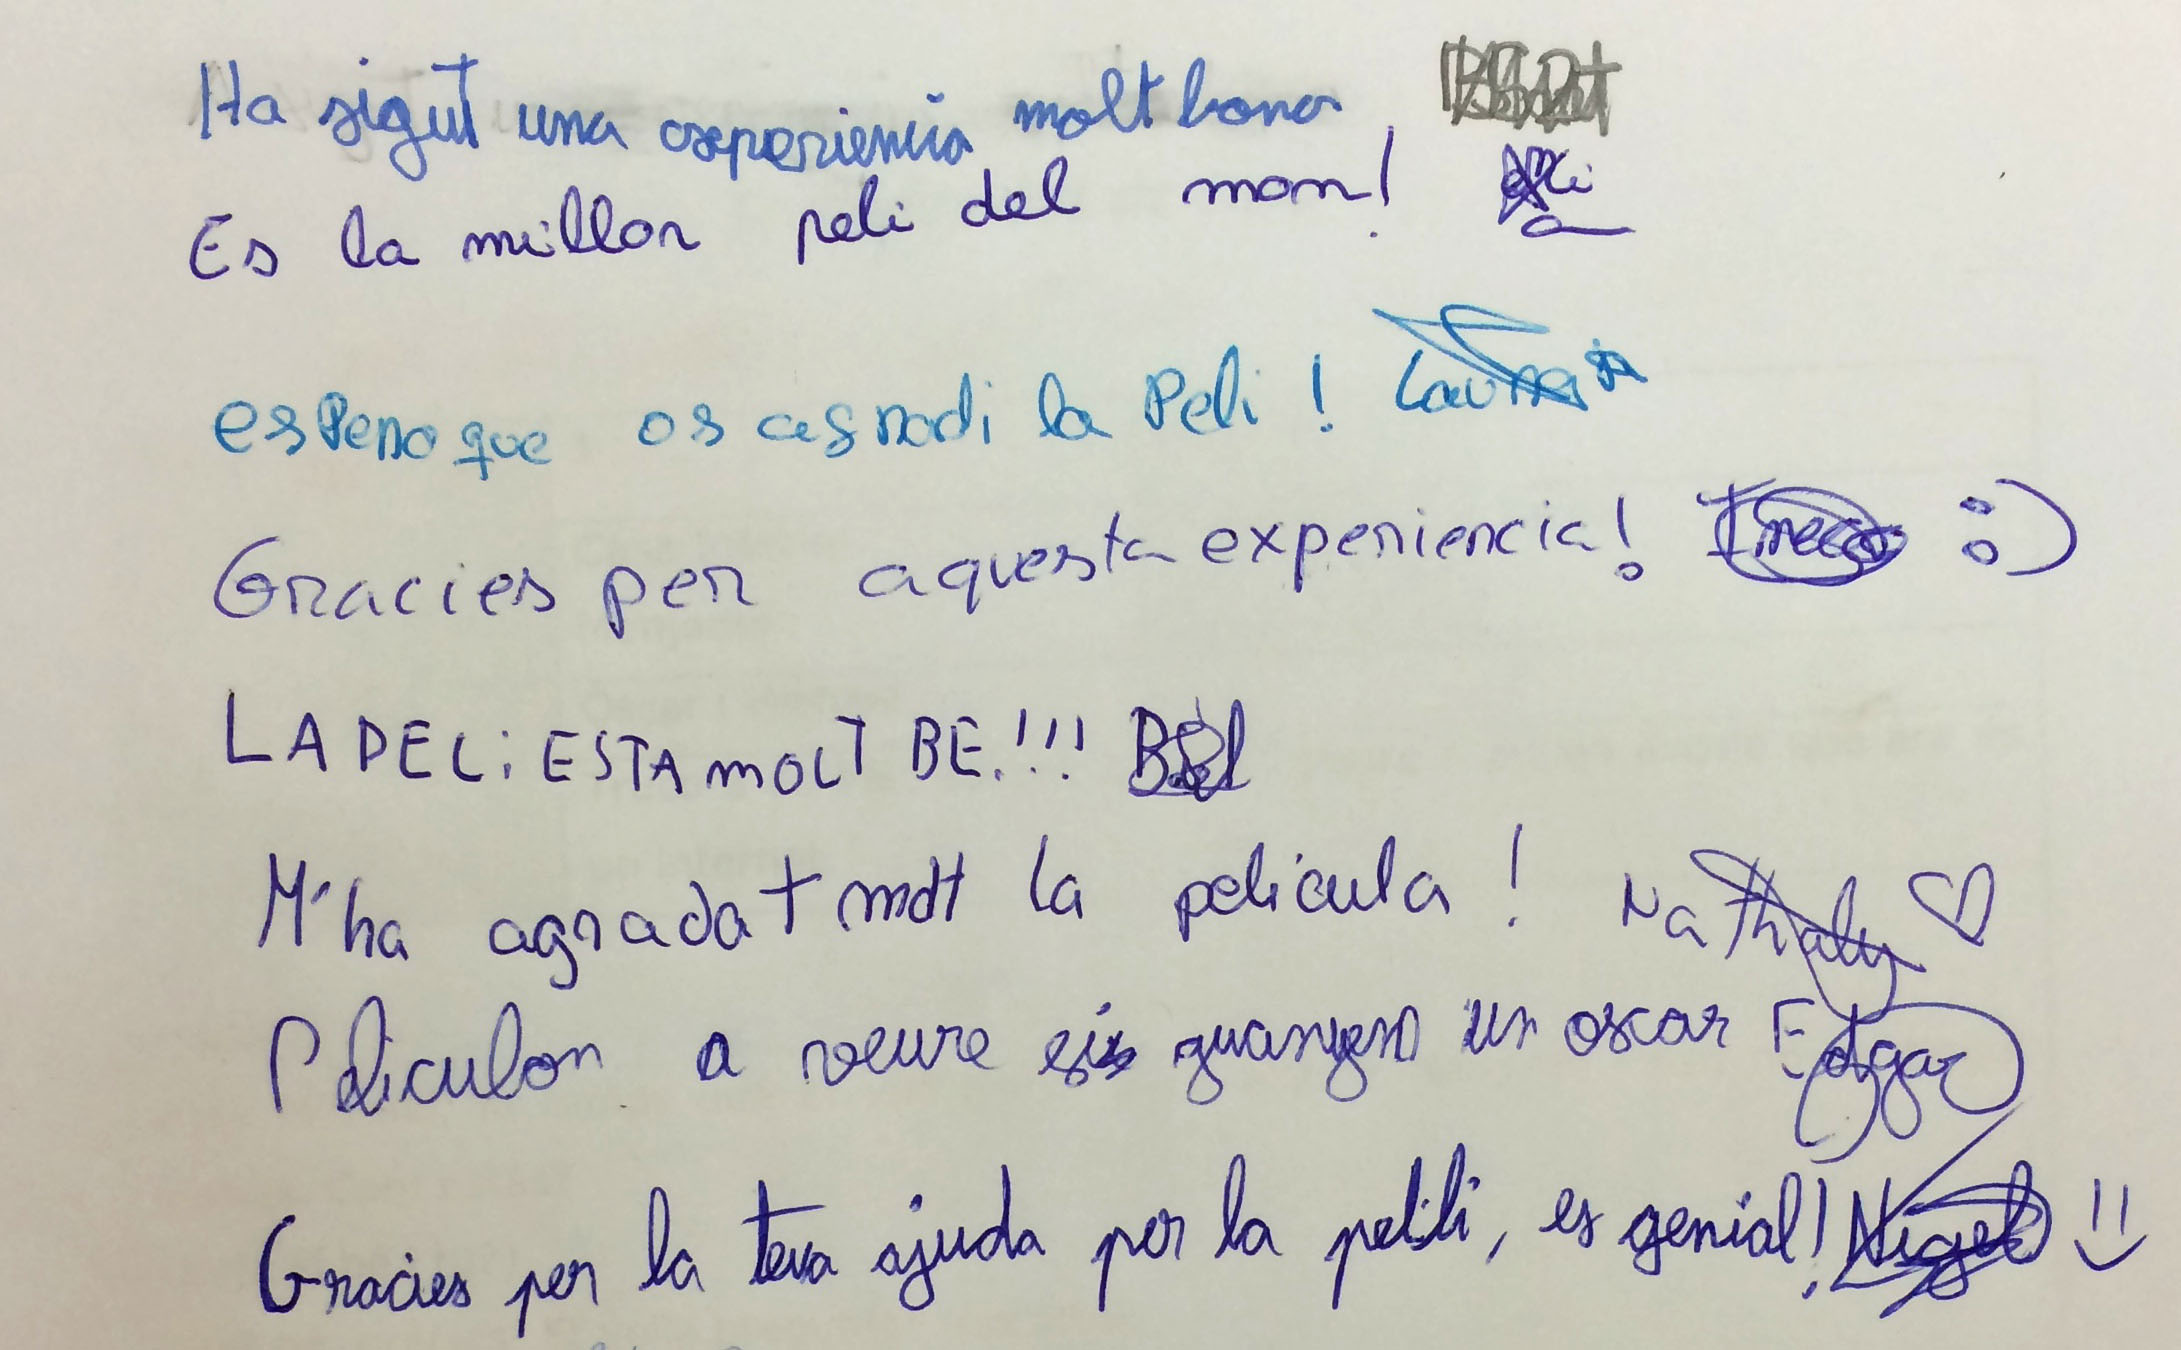 Ha sigut una experiencia molt bona.
Es la millor peli del mon!
espero que os agradi la Peli! Laura
Gracies per aquesta experiencia! :)
LA PELi ESTA mOLT BE.!!!
M'ha agradat molt la pelicula! Nathaly ♡
Peliculon a veure si guanyem un oscar Edgar
Gracies per la teva ajuda per la peli, es genial! Nigel